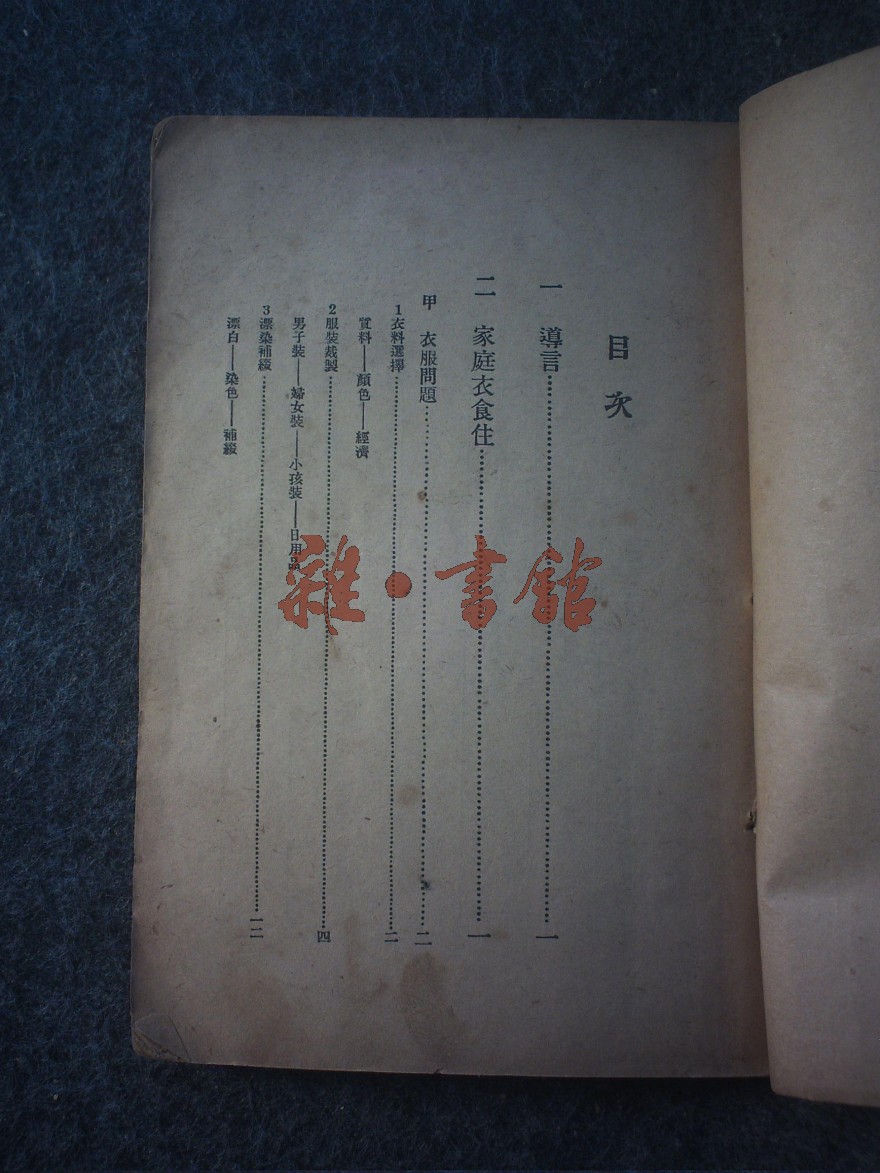 目次
一 導言……一
二 家庭衣食住……一
甲 衣服問題……二
1衣料選擇……二
質料——顏色——經濟
2服裝裁製……四
男子裝——婦女裝——小孩裝——日用品
3漂染補綴……一二
漂白——染色——補綴
雜·書館